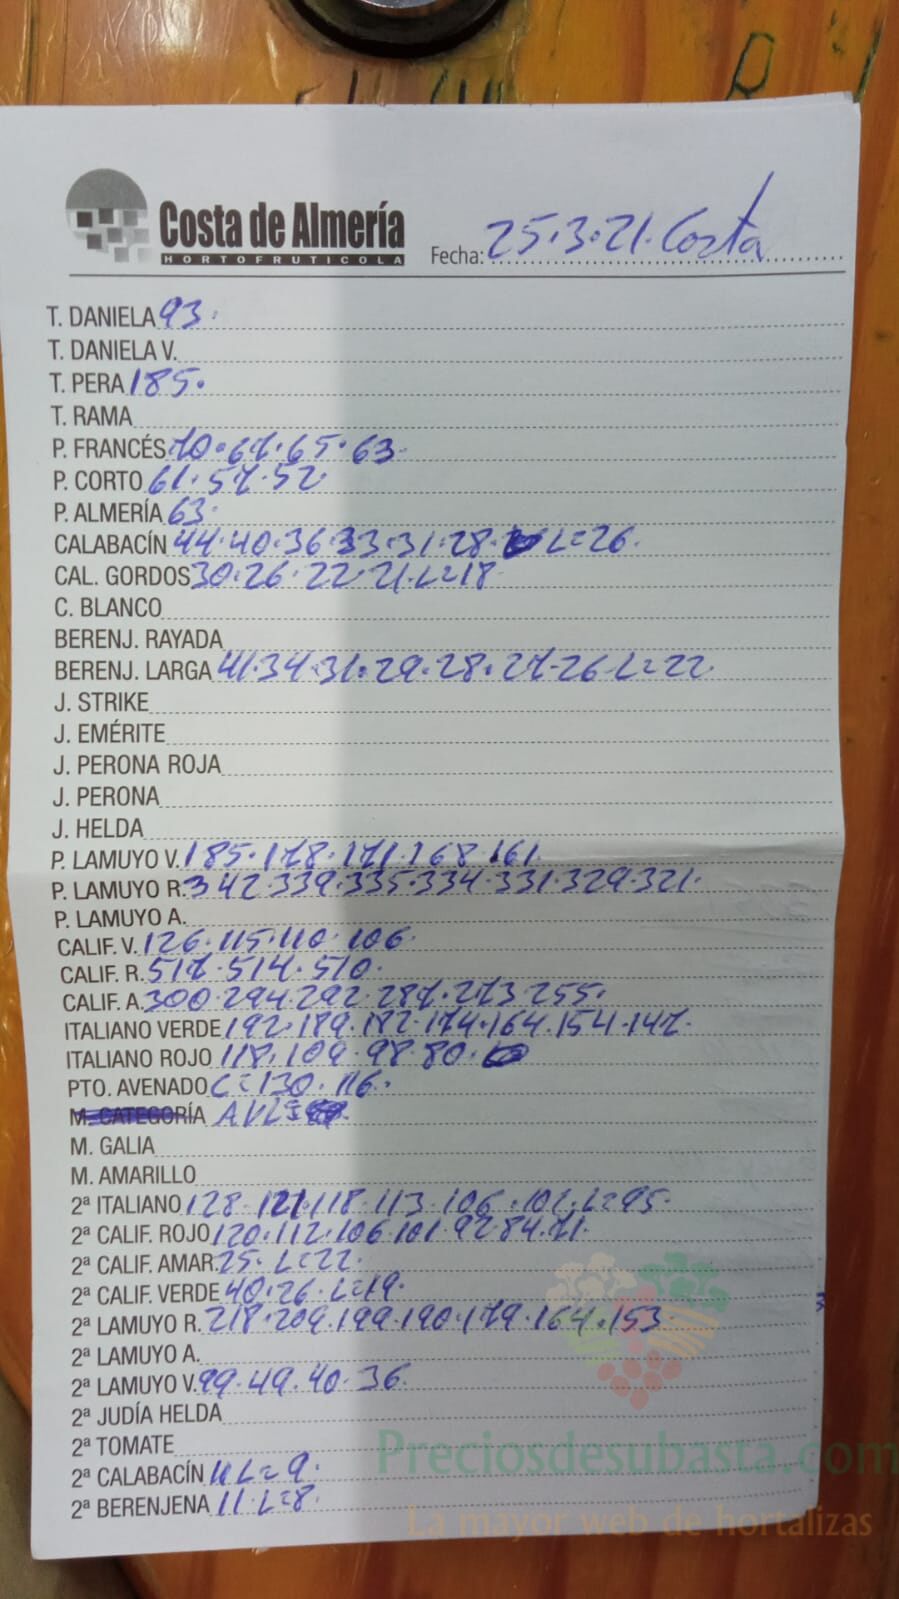 Costa de Almería
HORTOFRUTICOLA
Fecha: 25.3.21. Costa
T. DANIELA 93.
T. DANIELA V.
T. PERA 185.
T. RAMA
P. FRANCÉS 70.67.65.63
P. CORTO 61.57.52
P. ALMERÍA 63.
CALABACÍN 44.40.36.33.31.28. L=26.
CAL. GORDOS 30.26.22.21.L=18
C. BLANCO
BERENJ. RAYADA
BERENJ. LARGA 41.34.31.29.28.27.26 L=22.
J. STRIKE
J. EMÉRITE
J. PERONA ROJA
J. PERONA
J. HELDA
P. LAMUYO V. 185.178.171.168.161.
P. LAMUYO R. 342.339.335.334.331.329.321.
P. LAMUYO A.
CALIF. V. 126.115.110.106.
CALIF. R. 517.514.510.
CALIF. A. 300.294.292.287.273.255.
ITALIANO VERDE 192.189.182.174.164.154.147.
ITALIANO ROJO 118.109.98.80.
PTO. AVENADO C=130.116.
M. CATEGORÍA A.VL=
M. GALIA
M. AMARILLO
2ª ITALIANO 128.121.118.113.106.101.L=95.
2ª CALIF. ROJO 120.112.106.101.92.84.71.
2ª CALIF. AMAR. 25. L=22.
2ª CALIF. VERDE 40.26.L=19.
2ª LAMUYO R. 218.209.199.190.179.164.153.
2ª LAMUYO A.
2ª LAMUYO V. 99.49.40.36.
2ª JUDÍA HELDA
2ª TOMATE
2ª CALABACÍN 11 L=9.
2ª BERENJENA 11.L=8.
Preciosdesubasta.com
La mayor web de hortalizas